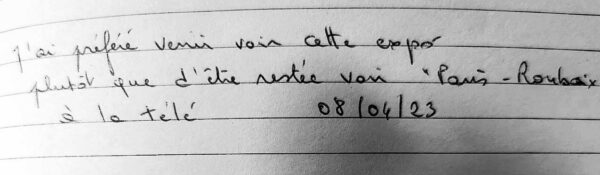 J'ai préféré venir voir cette expo
plutôt que d'être restée voir "Paris-Roubaix
à la télé 08/04/23